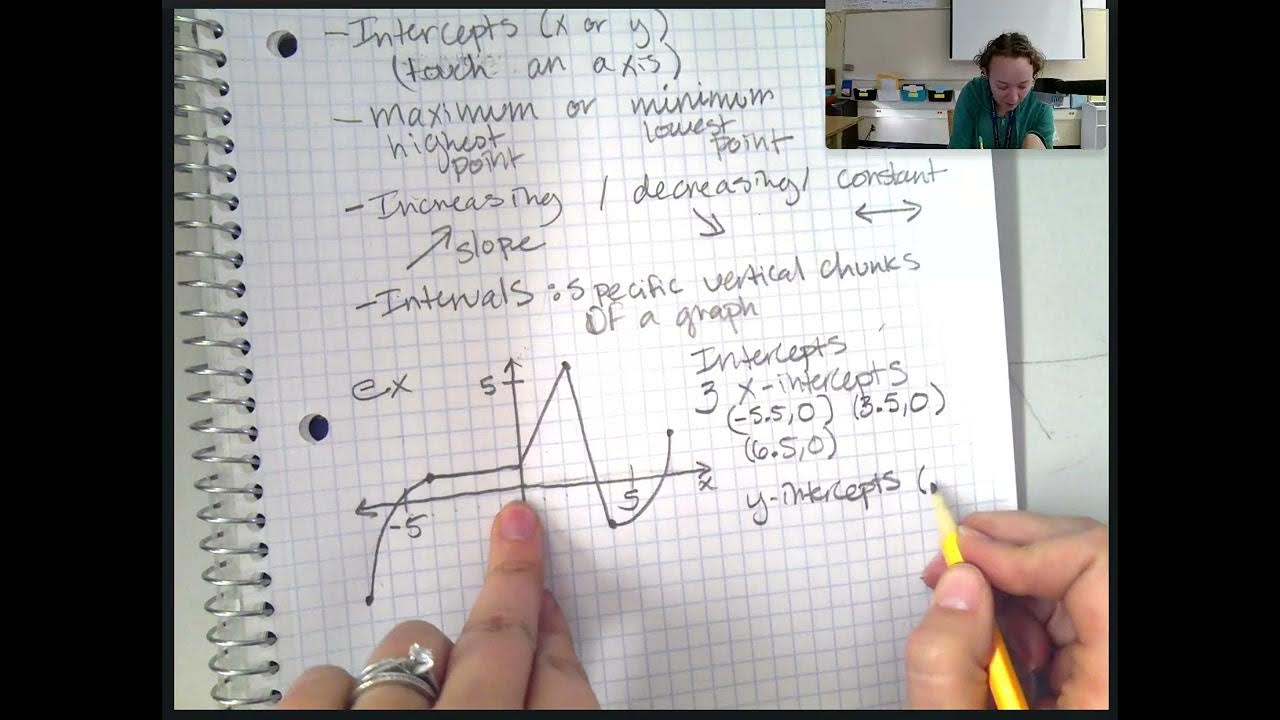 - Intercepts (x or y)
(touch an axis)
- maximum or minimum
highest point
lowest point
- Increasing / decreasing / constant
slope
- Intervals : specific vertical chunks
of a graph
ex
5
-5
5
x
Intercepts
3 x-intercepts
(-5.5,0) (3.5,0)
(6.5,0)
y-intercepts (